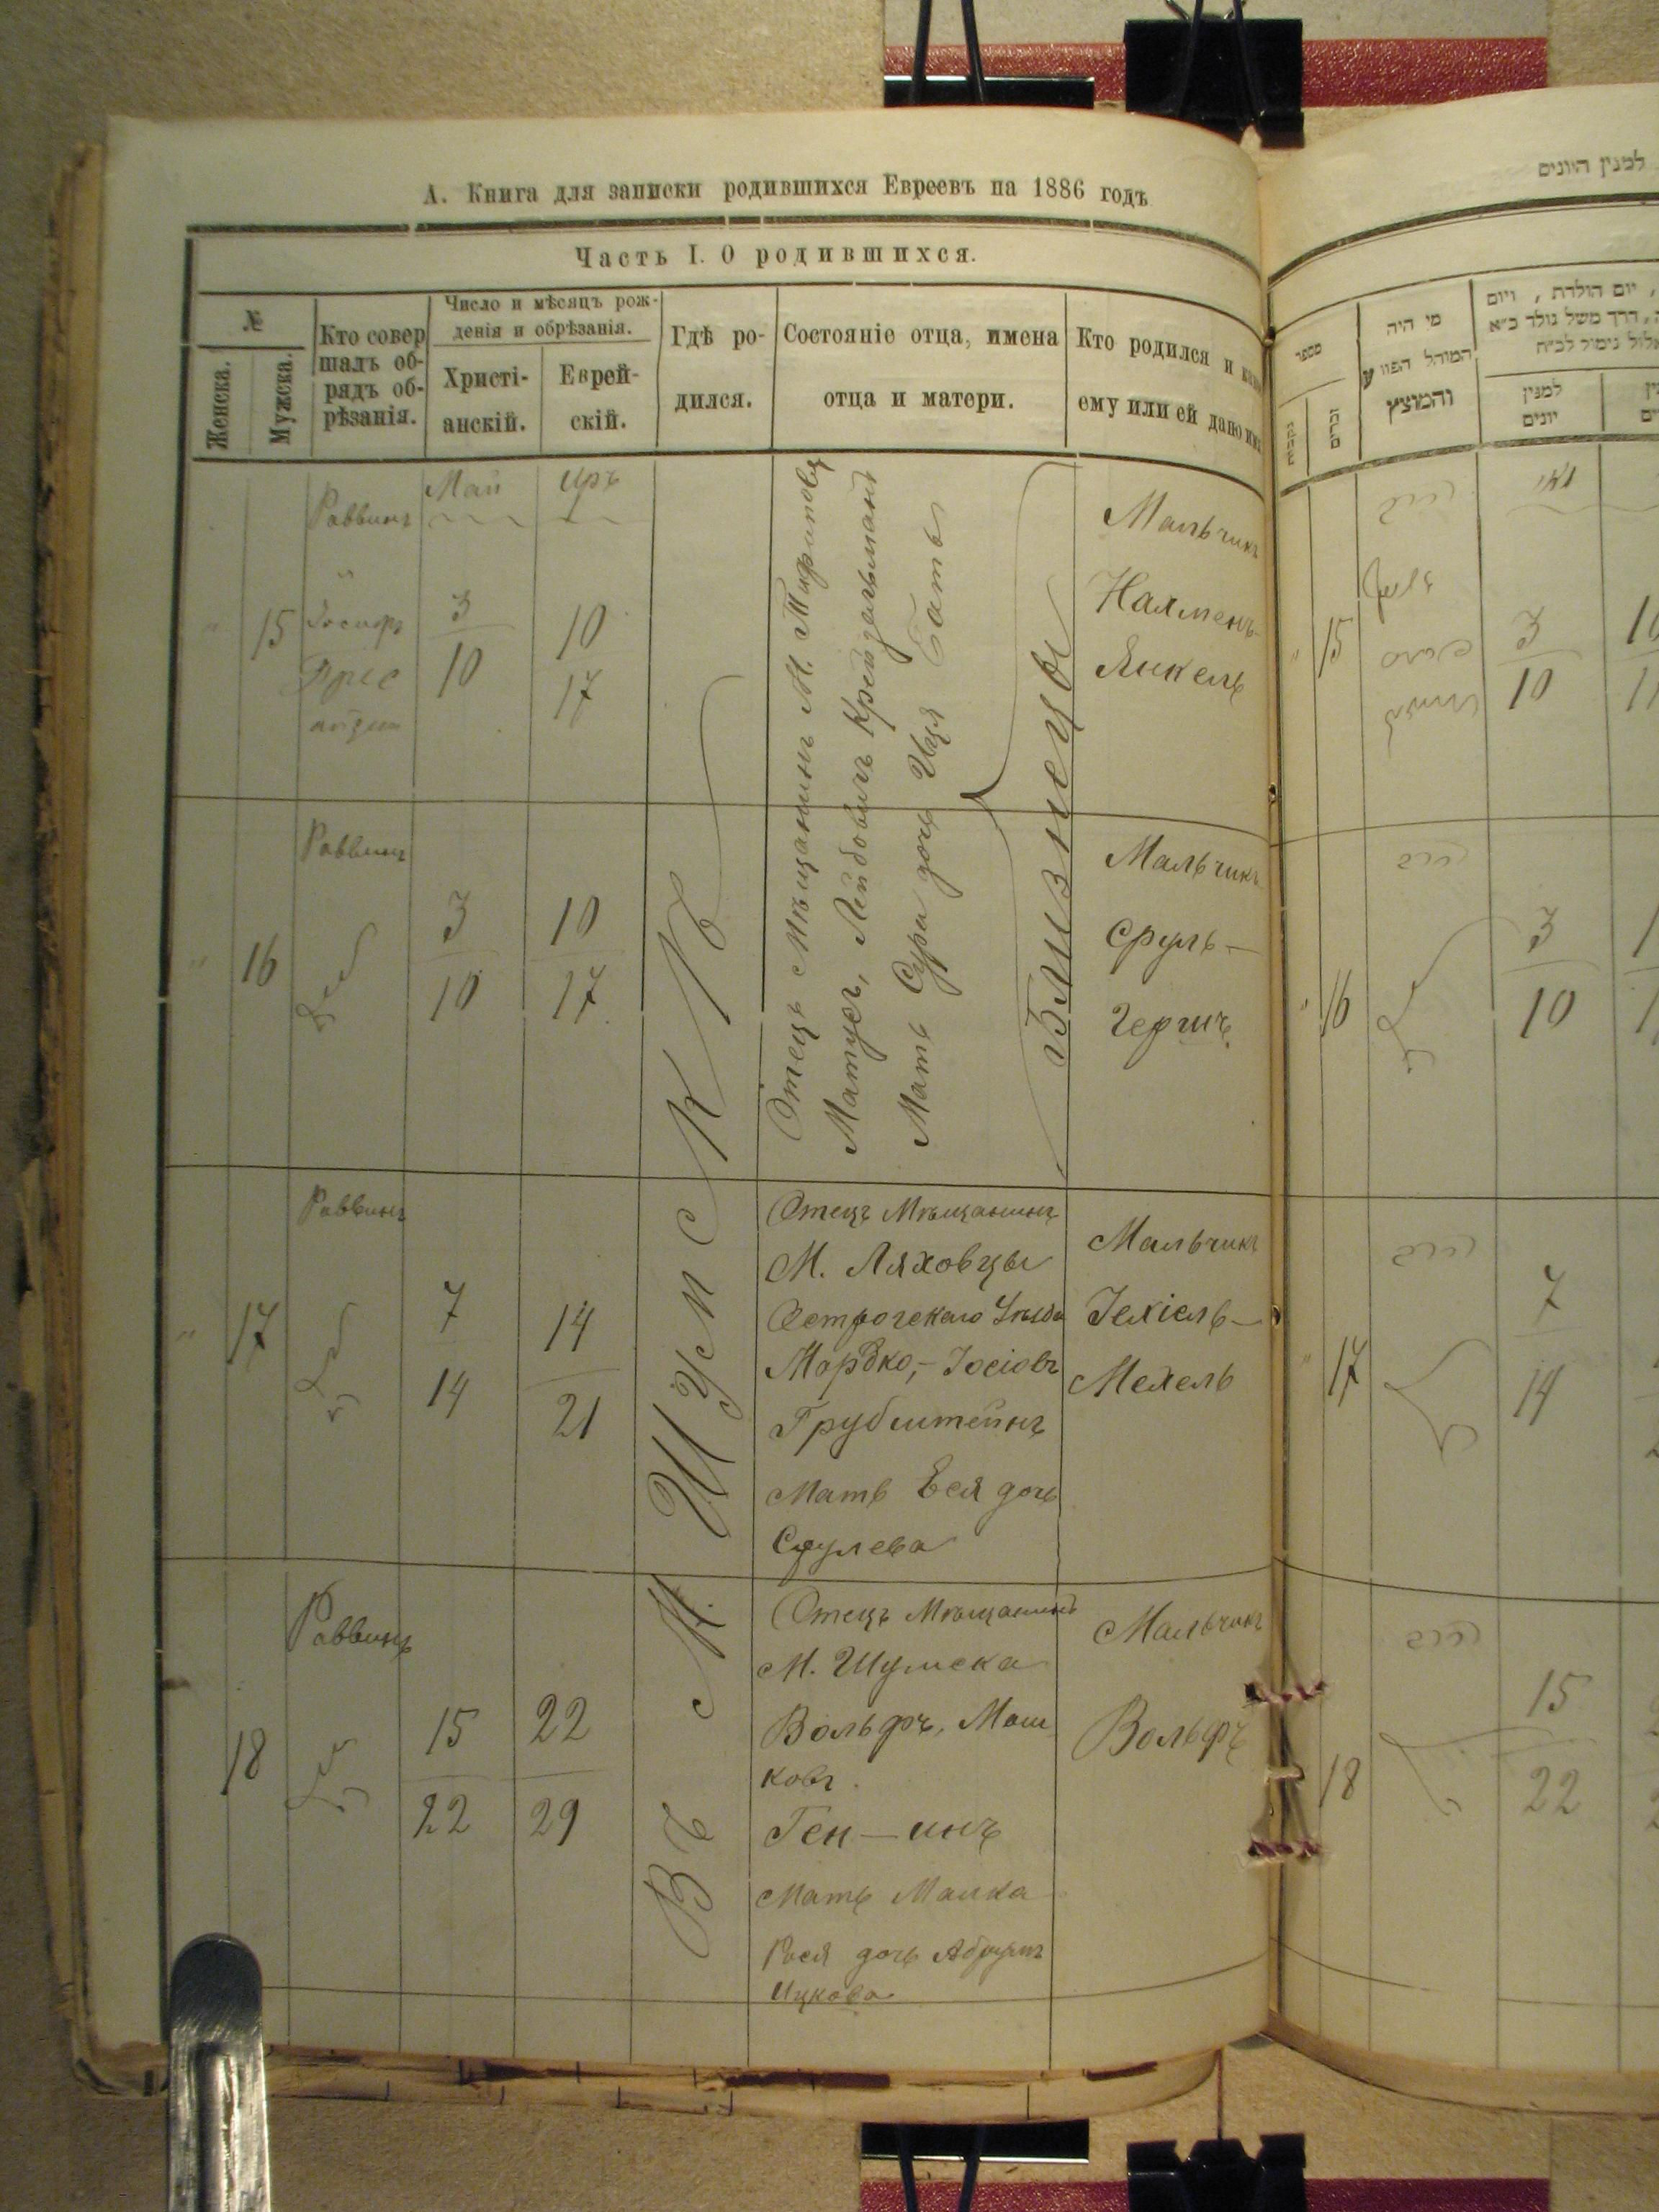 А. Книга для записки родившихся Евреевъ на 1886 годъ
Часть I. О родившихся.
№
Женска.
Мужска.
Кто совер
шалъ об-
рядъ об-
рѣзанія.
Число и мѣсяцъ рож-
денія и обрѣзанія.
Христі-
анскій.
Еврей-
скій.
Гдѣ ро-
дился.
Состояніе отца, имена
отца и матери.
Кто родился и
ему или ей дано
Раввинъ
Май
Иръ
15
Іосифъ
3
10
10
17
Отецъ Мѣщанинъ М.
Матусъ, Лейбовичъ
Мать Сура дочь
Близнецы
Мальчикъ
Нахменъ-
Янкель
Раввинъ
16
3
10
10
17
Мальчикъ
Сруль-
Гершъ
Въ М. Шумскѣ
Раввинъ
17
7
14
14
21
Отецъ Мѣщанинъ
М. Ляховцы
Острогскаго Уѣзда
Мордко,- Іосіовъ
Грубштейнъ
Мать Еся дочь
Срулева
Мальчикъ
Іехіель-
Мехель
Раввинъ
18
15
22
22
29
Отецъ Мѣщанинъ
М. Шумска
Вольфъ, Мош
ковъ.
Ген-инъ
Мать Малка
Рося дочь Абрумъ
Ицкова
Мальчикъ
Вольфъ
למנין היונים
מספר
נקבות
זכרים
מי היה
המוהל הפורע
והמוצץ
יום הולדת, ויום
דרך משל נולד כ״א
אלול נימול לכ״ח
למנין
יונים
מאי
15
3
10
16
3
10
17
7
14
18
15
22